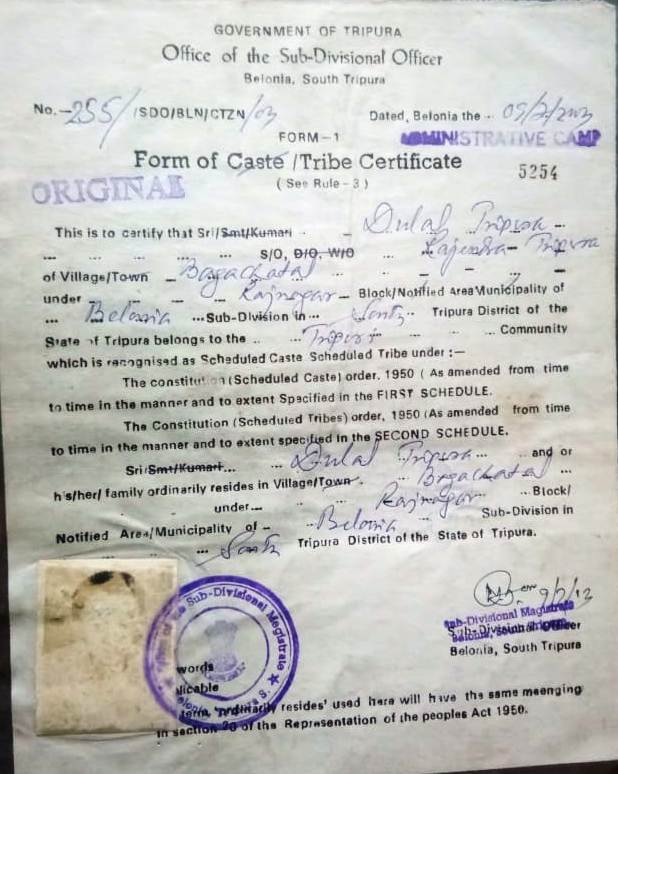 GOVERNMENT OF TRIPURA
Office of the Sub-Divisional Officer
Belonia, South Tripura
No.-255/ /SDO/BLN/CTZN/03 Dated, Belonia the -
FORM-1 ADMINISTRATIVE CAMP
Form of Caste /Tribe Certificate 5254
ORIGINAL ( See Rule - 3 )
This is to certify that Sri/Smt/Kumari Dulal Tripura
S/O, D/O, W/O Rajendra Tripura
of Village/Town Bagachatal
under Rajnagar Block/Notified Area Municipality of
Belonia Sub-Division in South Tripura District of the
State of Tripura belongs to the Tripuri Community
which is recognised as Scheduled Caste Scheduled Tribe under :—
The constitution (Scheduled Caste) order, 1950 ( As amended from time
to time in the manner and to extent Specified in the FIRST SCHEDULE.
The Constitution (Scheduled Tribes) order, 1950 (As amended from time
to time in the manner and to extent specified in the SECOND SCHEDULE.
Sri/Smt/Kumari Dulal Tripura and or
his/her/ family ordinarily resides in Village/Town Bagachatal
under Rajnagar Block/
Notified Area/Municipality of Belonia Sub-Division in
South Tripura District of the State of Tripura.
Sub-Divisional Magistrate
Sub-Divisional Officer
Belonia, South Tripura
of the Sub-Divisional Magistrate
words
licable
term, 'ordinarily resides' used here will have the same meenging
in section 20 of the Representation of the peoples Act 1950.